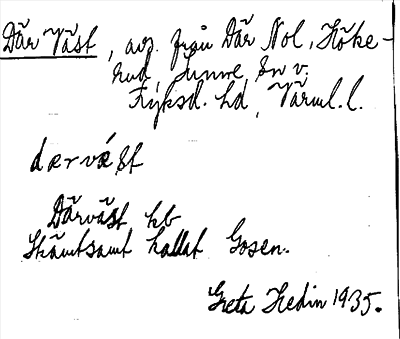 Där Väst, avs. från Där Nol, Höke-
rud, Sunne, sn v.
Fryksd. hd, Värml. l.
dærvést
Därväst kb
Skämtsamt kallat Gosen.
Greta Hedin 1935.